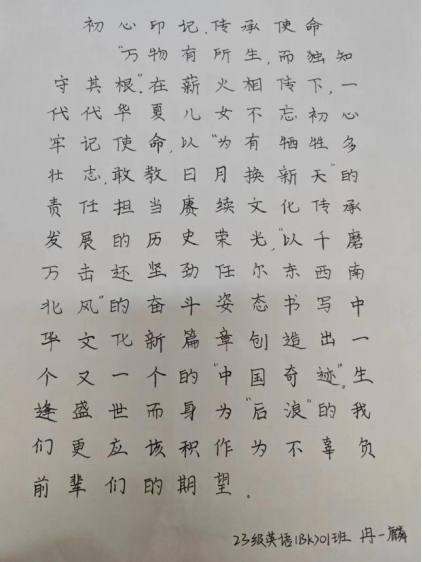 初心印记,传承使命
"万物有所生,而独知
守其根"。在薪火相传下,一
代代华夏儿女不忘初心
牢记使命,以"为有牺牲多
壮志,敢教日月换新天"的
责任担当赓续文化传承
发展的历史荣光,"以千磨
万击还坚劲任尔东西南
北风"的奋斗姿态书写中
华文化新篇章创造出一
个又一个的"中国奇迹"。生
逢盛世而身为"后浪"的我
们更应该积作为不辜负
前辈们的期望。
23级英语(BK)01班 冉一麟